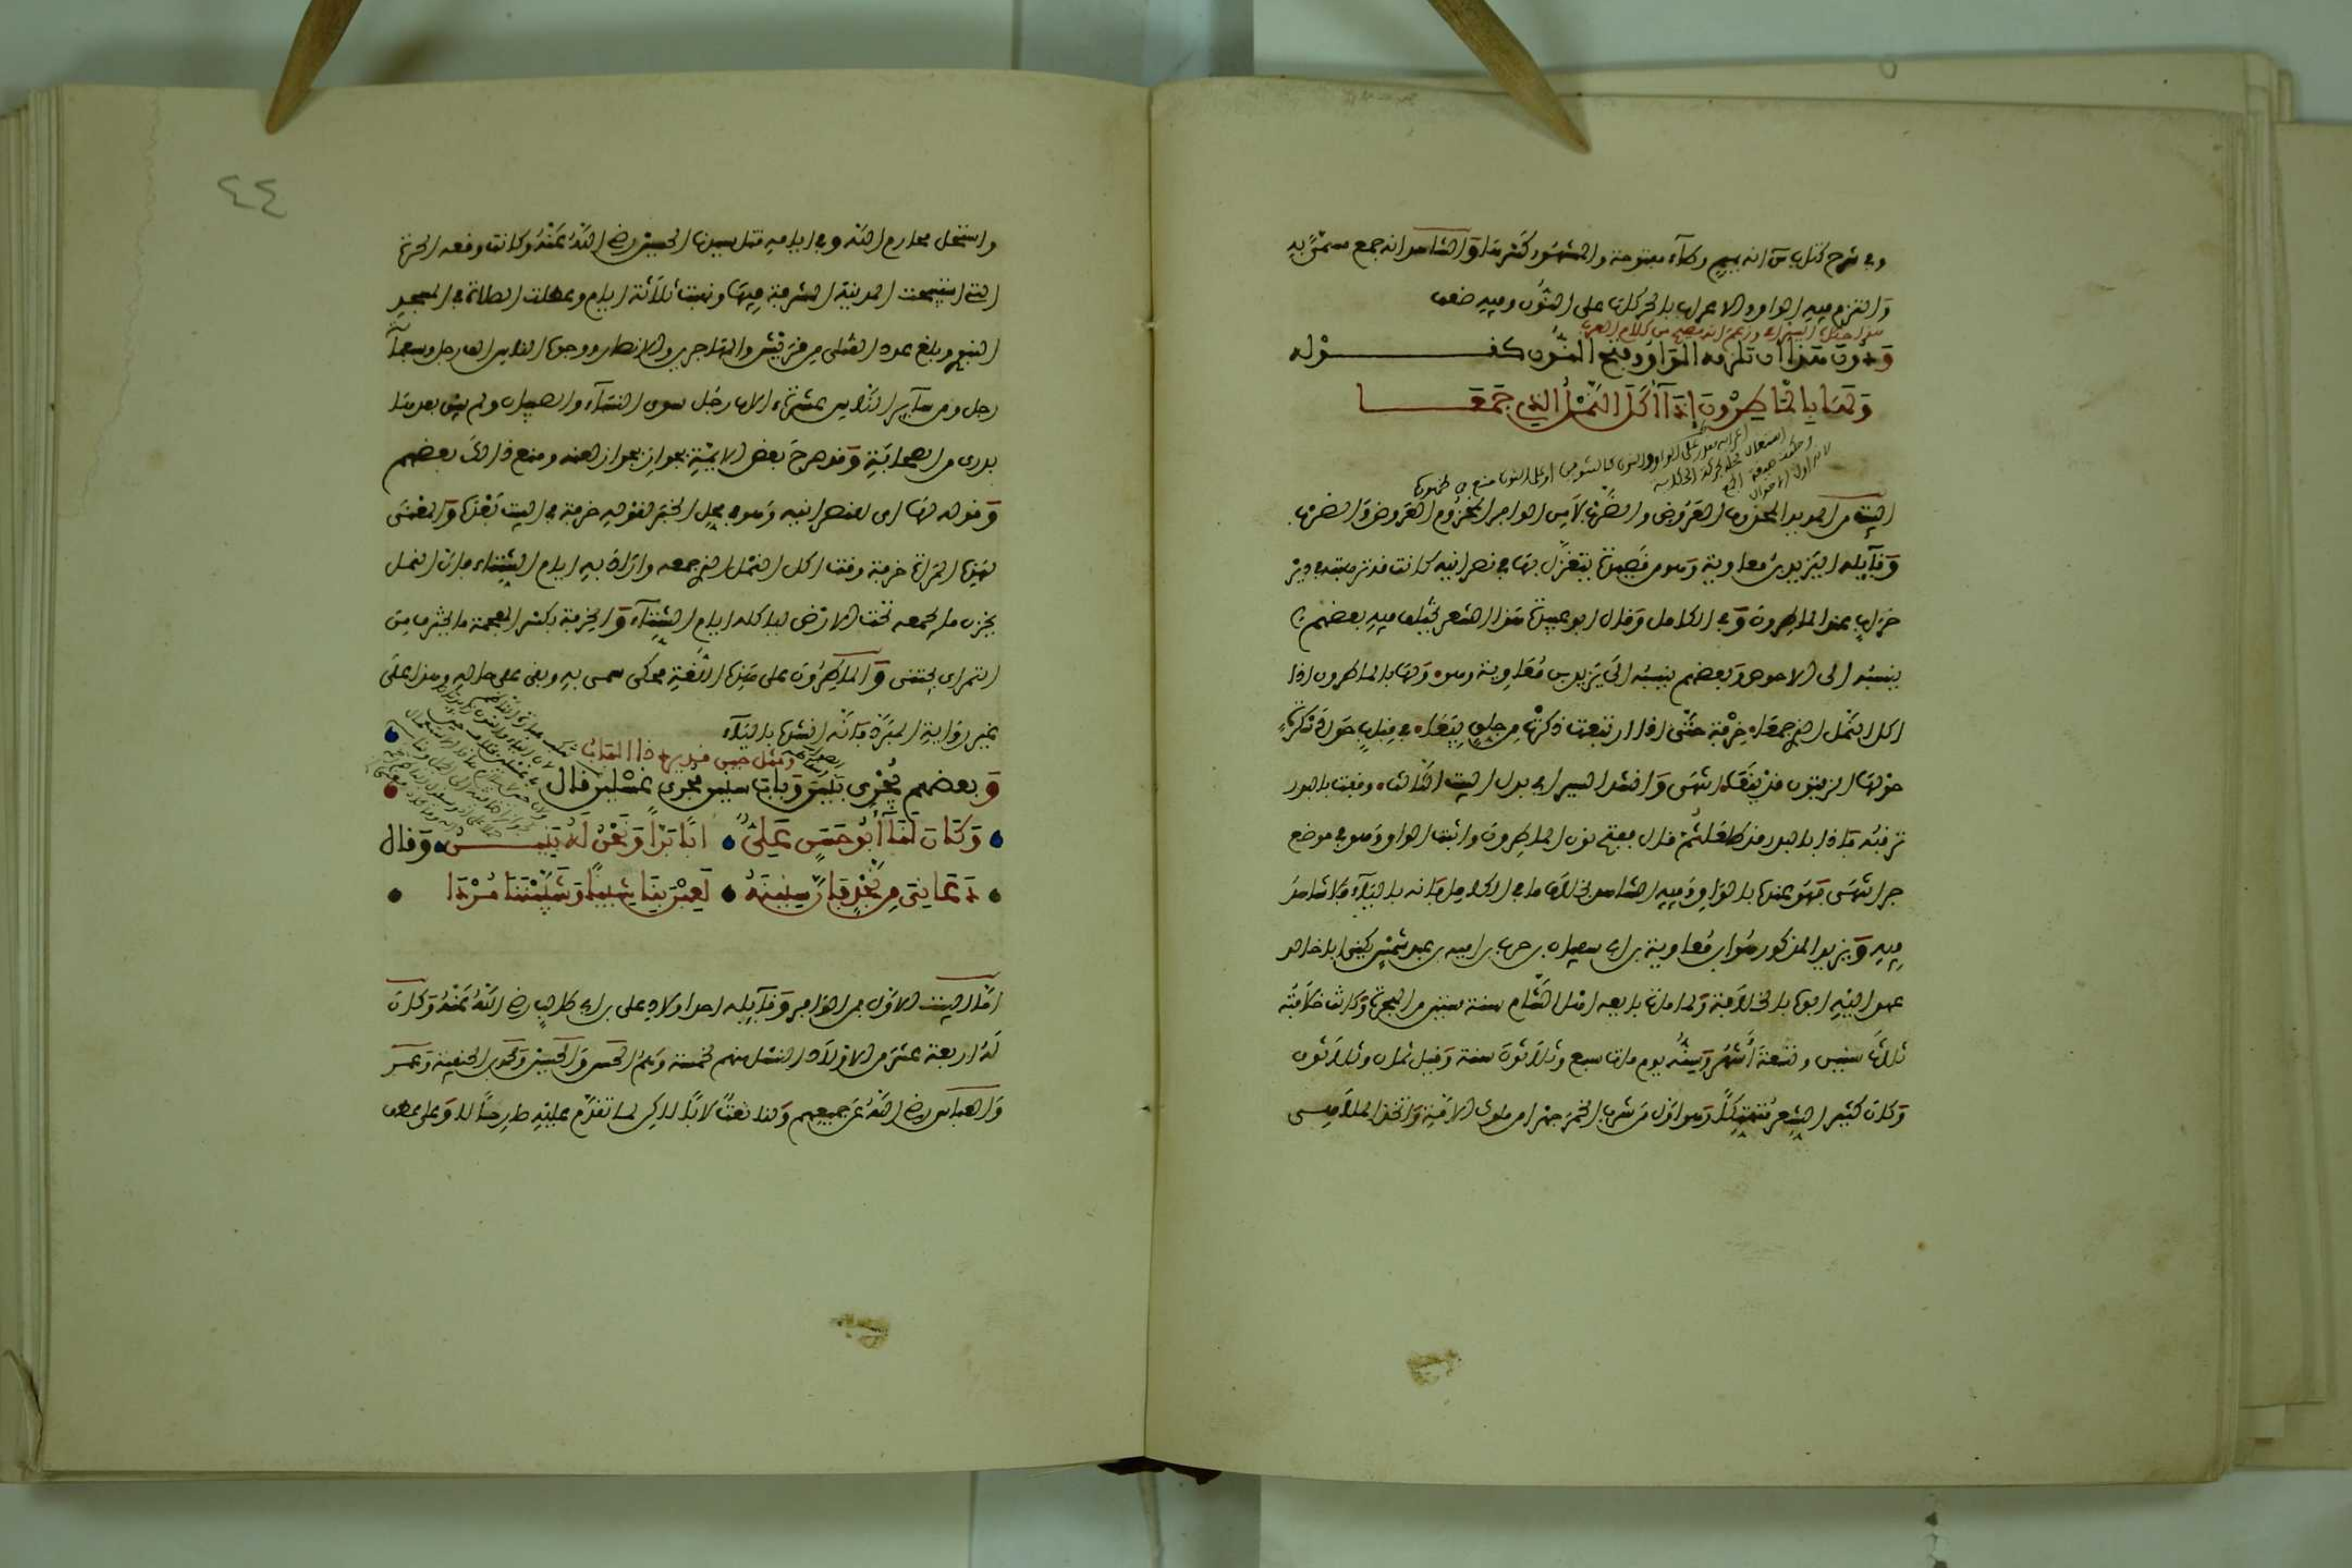 وفي شرح كتاب س انه بميم وطاء مفتوحة والمشهور كسرها والشاهد انه جمع سمي به
والتزم فيه الواو والاعراب بالحركات على النون وفيه ضعف
هذا حكاه السيرافي وزعم انه صحيح من كلام العرب
ودون هذا ان تلزمه الواو وفتح النون كقوله
ولها بالماطرون اذا أكل النمل الذي جمعا
البيت من المديد المحذوف العروض والضرب لا من الوافر المجزوم العروض والضرب
وقائله اليزيد بن معاوية وهو من قصيدة يتغزل بها في نصرانية كانت قد ترهبت في دير
خراب عند الماطرون وفي الكامل وقال ابو عبيدة هذا الشعر يختلف فيه بعضهم
ينسبه الى الاحوص وبعضهم ينسبه الى يزيد بن معاوية وهو ولها بالماطرون اذا
اكل النمل الذي جمعا خرفة حتى اذا ارتبعت ذكرت من جلق بيعا في قباب حول دسكرة
حولها الزيتون قد ينعا انتهى وانشد السيرافي بدل البيت الثالث وقفت بالبدر
ترقبه فاذا بالبدر قد طلعا ثم قال بفتح نون الماطرون واثبت الواو وهو في موضع
جر انتهى فهو عنده بالواو وفيه الشاهد بخلاف ما في الكامل فانه بالياء فلا شاهد
فيه ويزيد المذكور هو ابن معاوية بن ابي سفيان بن حرب بن امية بن عبد شمس يكنى ابا خالد
عهد اليه ابوه بالخلافة ولما مات بايعه اهل الشام سنة ستين من الهجرة وكانت خلافته
ثلاث سنين وتسعة أشهر وسنه يوم مات سبع وثلاثون سنة وقيل ثمان وثلاثون
وكان كثير الشعر متهتكا وهو اول من شرب الخمر جهرا من ملوك الامية واتخذ الملاهي
٤٤
واستحل محارم الله وفي ايامه قتل سيدنا الحسين رضي الله عنه وكانت وقعة الحرة
التي استبيحت المدينة الشريفة فيها ونهبت ثلاثة ايام وعطلت الصلاة في المسجد
النبوي وبلغ عدد القتلى من قريش والمهاجرين والانصار ووجوه الناس الف رجل وسبعمائة
رجل ومن سائر الناس عشرة الاف رجل سوى النساء والصبيان ولم يبق بعدها
بدري من الصحابة وقد صرح بعض الايمة بجواز لعنه ومنع ذلك بعضهم
وقوله لها اي للنصرانية وهو في محل الخبر لقوله خرفة في البيت بعده والمعنى
لهذه المرأة خرفة وقت اكل النمل الذي جمعه واراد به ايام الشتاء فان النمل
يخزن ما يجمعه تحت الارض لياكله ايام الشتاء والخرفة بكسر المعجمة ما يخترف من
التمر اي يجتنى والماطرون على هذه اللغة محكى سمي به وبقي على حاله وهذا على
غير رواية المبرد فانه انشده بالياء
ومثل حين قد يرد ذا الباب
وبعضهم يجري بنين وباب سنين مجرى غسلين قال
وكان لنا أبو حسن علي ابا برا ونحن له بنين وقال
دعاني من نجد فان سنينه لعبن بنا شيبا وشيبننا مردا
اما البيت الاول من الوافر وقائله احد اولاد علي بن ابي طالب رضي الله عنه وكان
له اربعة عشر من الاولاد النسل منهم لخمسة وهم الحسن والحسين ومحمد بن الحنفية وعمر
والعباس رضي الله عن جميعهم